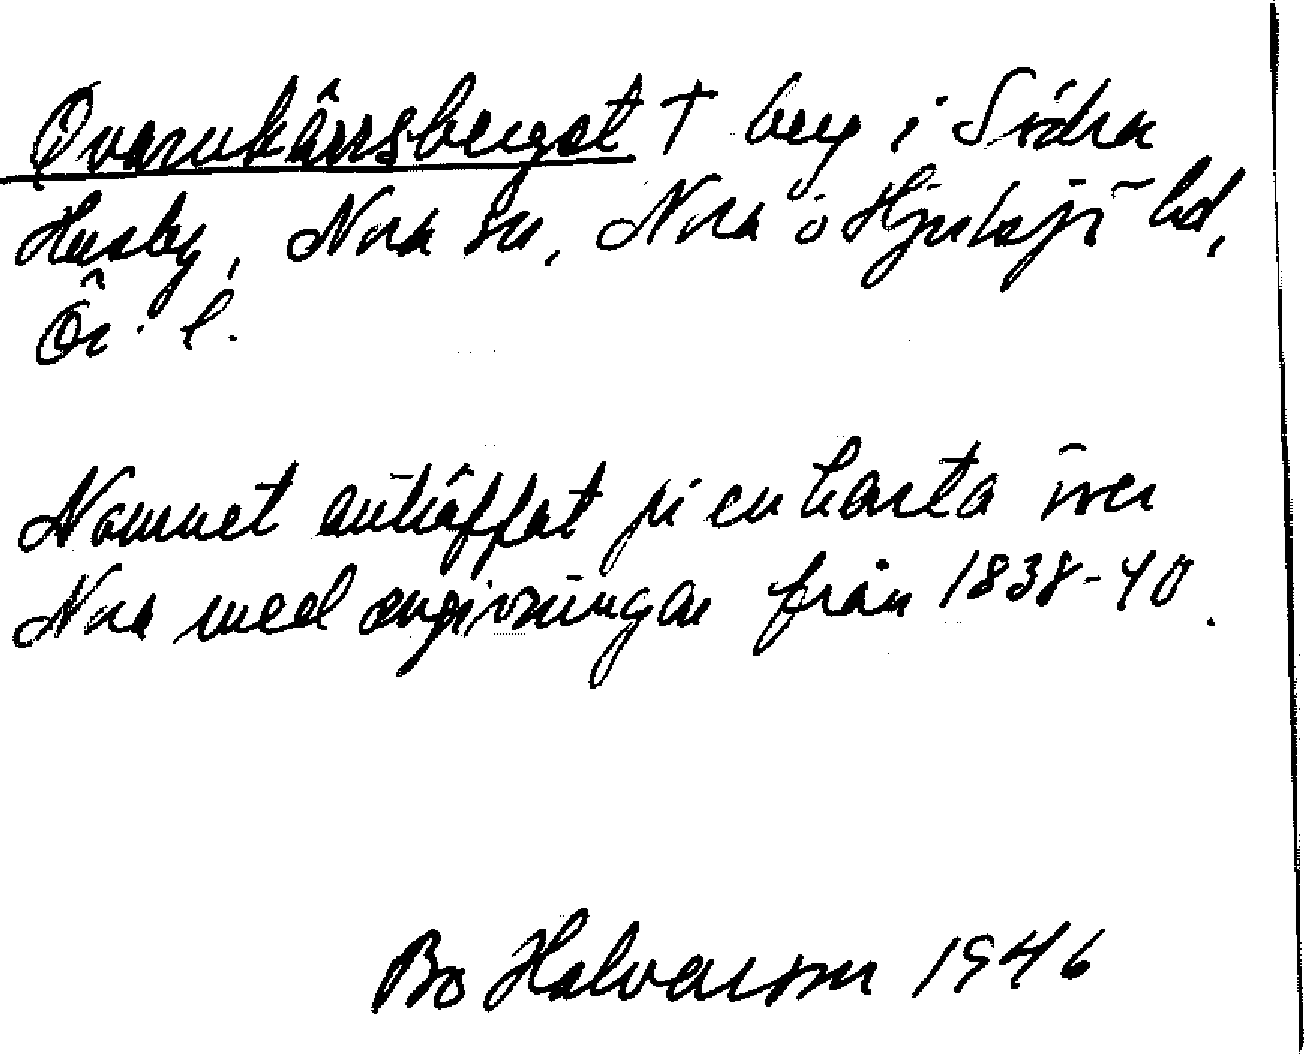 Qvarnkärrsberget † berg i Södra
Husby, Nora sn, Nora o Hjulsjö hd,
Ör. l.
Namnet anträffat på en karta över
Nora med omgivningar från 1838-40.
Bo Halvarsson 1946